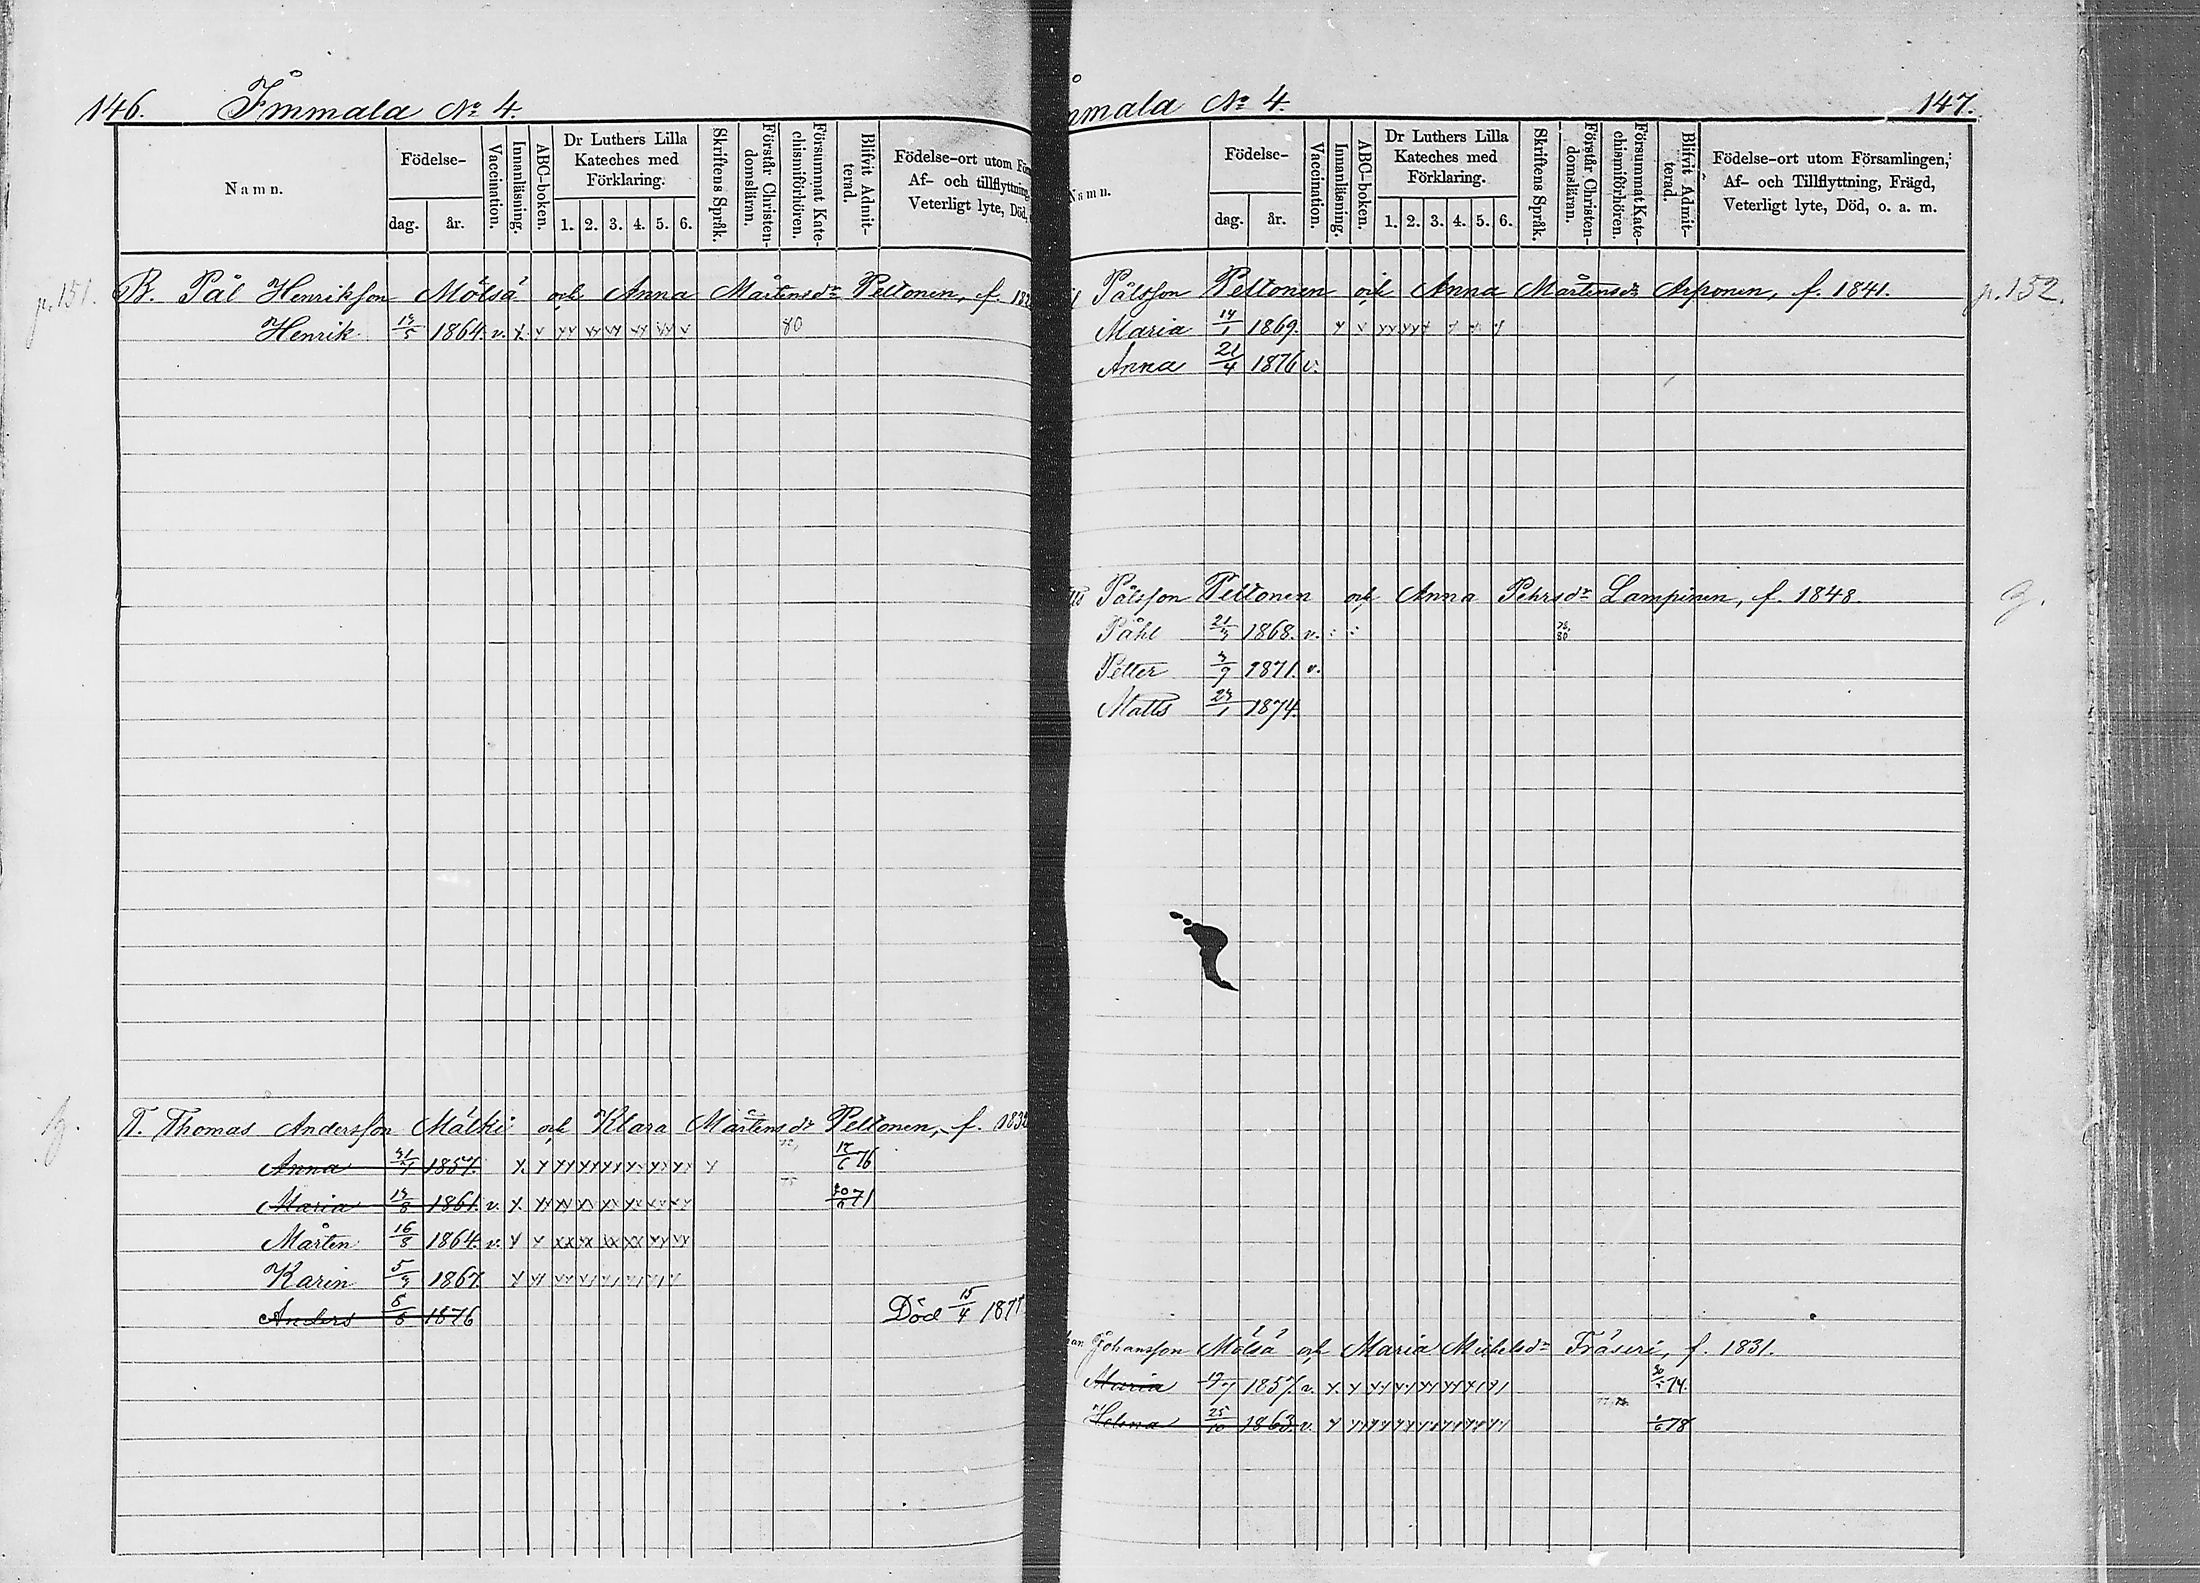 146. Immala № 4.
Namn.
Födelse-
dag. år.
Vaccination.
Innanläsning.
ABC-boken.
Dr Luthers Lilla Kateches med Förklaring.
1. 2. 3. 4. 5. 6.
Skriftens Språk.
Förstår Christendomsläran.
Försummat Katechismiförhören.
Blifvit Admitterad.
Födelse-ort utom För
Af- och tillflyttning,
Veterligt lyte, Död,
p. 151. B. Pål Henriksson Mölsä och Anna Mårtensdr Peltonen, f.
Henrik 1864. v. 80
T. Thomas Andersson Mälki och Klara Mårtensdr Peltonen, f. 1832
Anna 1857. 76
Maria 1861. v. 71
Mårten 16/8 1864. v.
Karin 1867.
Anders 1876 Död 15/4 187
mmala № 4. 147.
Namn.
Födelse-
dag. år.
Vaccination.
Innanläsning.
ABC-boken.
Dr Luthers Lilla Kateches med Förklaring.
1. 2. 3. 4. 5. 6.
Skriftens Språk.
Förstår Christendomsläran.
Försummat Katechismiförhören.
Blifvit Admitterad.
Födelse-ort utom Församlingen,
Af- och Tillflyttning, Frägd,
Veterligt lyte, Död, o. a. m.
Pålsson Peltonen och Anna Mårtensdr Arponen, f. 1841. p. 152.
Maria 14/1 1869.
Anna 21/4 1876 v.
Pålsson Peltonen och Anna Pehrsdr Lampinen, f. 1848.
Påhl 1868. v. 78, 80
Petter 1871. v.
Matts 1874.
Johansson Mölsä och Maria Michelsdr Träseri, f. 1831.
Maria 1857. v. 74.
Helena 25/10 1863. v. 78